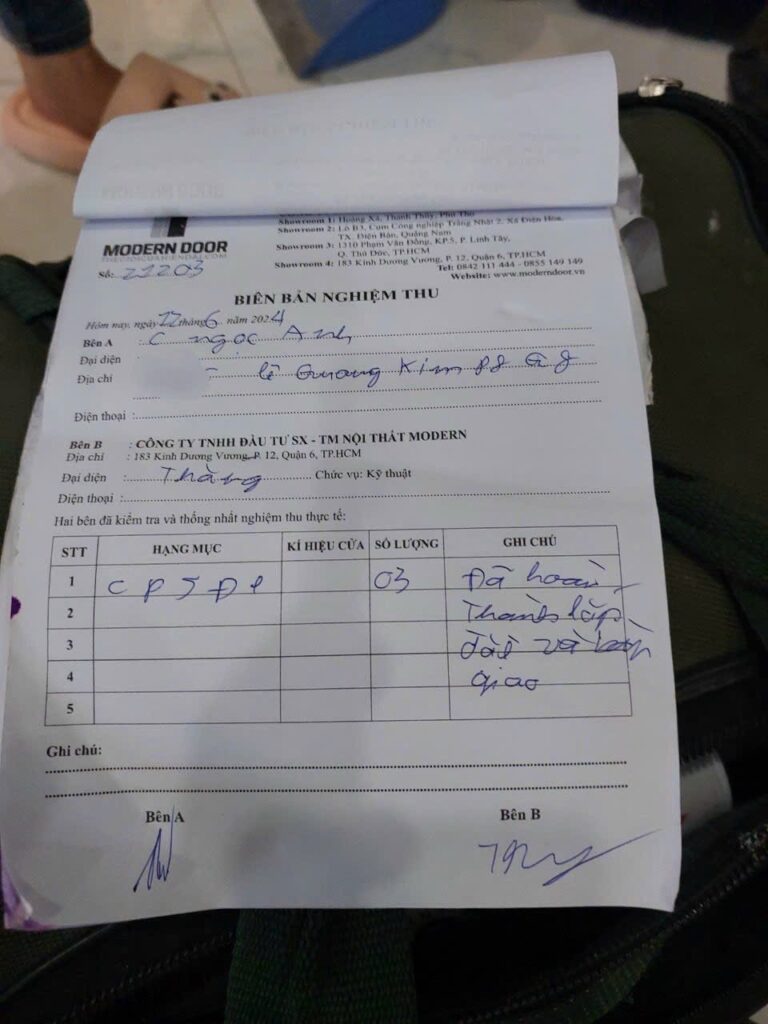 Showroom 1: Hoàng Xá, Thanh Thủy, Phú Thọ
Showroom 2: Lô B3, Cụm Công nghiệp Trảng Nhật 2, Xã Điện Hòa,
TX. Điện Bàn, Quảng Nam
Showroom 3: 1310 Phạm Văn Đồng, KP.5, P. Linh Tây,
Q. Thủ Đức, TP.HCM
Showroom 4: 183 Kinh Dương Vương, P. 12, Quận 6, TP.HCM
Tel: 0842 111 444 - 0855 149 149
Website: www.moderndoor.vn
MODERN DOOR
THEGIOICUAHIENDAI.COM
Số: 21203
BIÊN BẢN NGHIỆM THU
Hôm nay, ngày 22 tháng 6 năm 2024
Bên A : C ngọc Anh
Đại diện
Địa chỉ - lê Quang Kim P8 Q8
Điện thoại :
Bên B : CÔNG TY TNHH ĐẦU TƯ SX - TM NỘI THẤT MODERN
Địa chỉ : 183 Kinh Dương Vương, P. 12, Quận 6, TP.HCM
Đại diện : Thắng Chức vụ: Kỹ thuật
Điện thoại :
Hai bên đã kiểm tra và thống nhất nghiệm thu thực tế:
STT HẠNG MỤC KÍ HIỆU CỬA SỐ LƯỢNG GHI CHÚ
1 03 Đã hoàn
2 Thành lắp
3 đặt và bàn
4 giao
5
Ghi chú:
Bên A Bên B